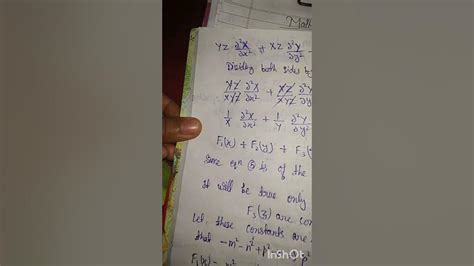 Math
YZ ∂²X/∂x² + XZ ∂²Y/∂y² -
Dividing both sides by
YZ/XYZ ∂²X/∂x² + XZ/XYZ ∂²Y/∂y²
1/X ∂²X/∂x² + 1/Y ∂²Y/∂y²
F₁(x) + F₂(y) + F₃(
eqⁿ ⑤ is of the
It will be true only
F₃(z) are con
Let, these constants are
that -m² - n² + p²
F₁(x) = -m²
InShOt